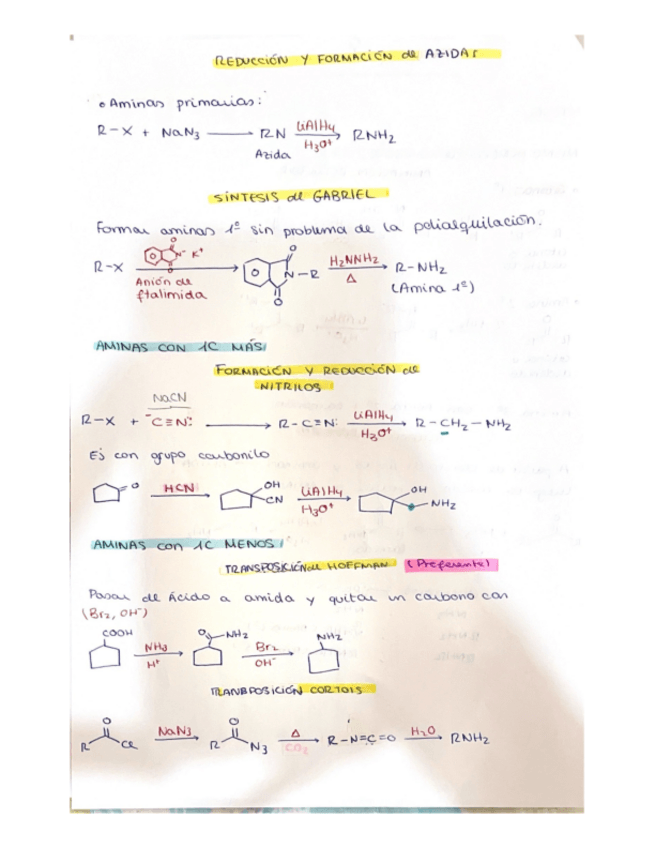 REDUCCIÓN Y FORMACIÓN de AZIDAS
• Aminas primarias:
R-X + NaN₃ → RN LiAlH₄ H₃O⁺ → RNH₂
Azida
SÍNTESIS de GABRIEL
Formar aminas 1º sin problema de la polialquilación.
R-X O N⁻ K⁺ O → O N-R O H₂NNH₂ Δ → R-NH₂
Anión de ftalimida (Amina 1º)
AMINAS CON 1C MÁS
FORMACIÓN Y REDUCCIÓN de
NITRILOS
NaCN
R-X + ⁻C≡N: → R-C≡N: LiAlH₄ H₃O⁺ → R-CH₂-NH₂
Ej con grupo carbonilo
O HCN → OH CN LiAlH₄ H₃O⁺ → OH NH₂
AMINAS con 1C MENOS
TRANSPOSICIÓN de HOFFMAN (Preferente)
Pasar de Ácido a amida y quitar un carbono con
(Br₂, OH⁻)
COOH NH₃ H⁺ → O NH₂ Br₂ OH⁻ → NH₂
TRANSPOSICIÓN CORTOIS
R O Cl NaN₃ → R O N₃ Δ CO₂ → R-N=C=O H₂O → RNH₂